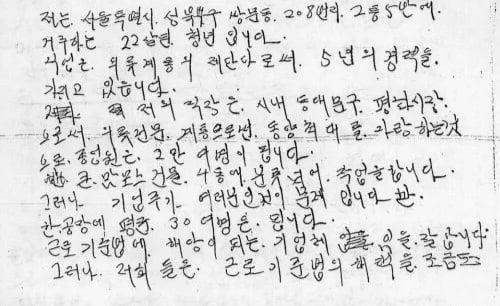 저는. 서울특별시. 성북구 쌍문동. 208번지. 2통5반에.
거주하는 22살된. 청년 입니다.
직업은. 의류계통의 재단사로써. 5년의 경력을.
가지고 있읍니다.
저의 직장은. 시내 동대문구. 평화시장.
으로써. 의류전문. 계통으로썬. 동양최대를. 자랑하는것
으로. 종업원은. 2만 여명이 됩니다.
큰. 맘모스 건물. 4동에 분류되어. 작업을합니다.
그러나 기업주가. 여러분인것이 문제 입니다 만.
한공장에 평균. 30여명은. 됩니다.
근로기준법에. 해당이 되는. 기업체 임을. 잘 압니다.
그러나. 저희 들은. 근로기준법의 혜택을. 조금도